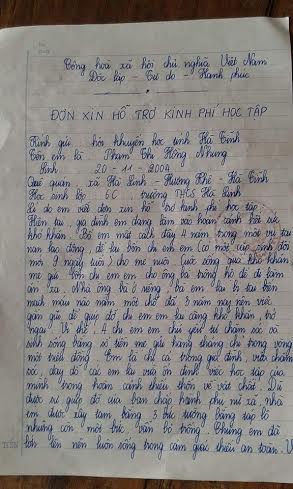 Cộng hoà xã hội chủ nghĩa Việt Nam
Độc lập - Tự do - Hạnh phúc
ĐƠN XIN HỖ TRỢ KINH PHÍ HỌC TẬP
Kính gửi: hội khuyến học tỉnh Hà Tĩnh
Tên em là: Phạm Thị Hồng Nhung
Sinh 20 - 11 - 2004
Quê quán xã Hà Linh - Hương Khê - Hà Tĩnh
Học sinh lớp 6C trường THCS Hà Linh
Lí do em viết đơn xin hỗ trợ kinh phí học tập:
Hiện tại, gia đình em đang lâm vào hoàn cảnh hết sức
khó khăn. Bố em mất cách đây 4 năm trong một vụ tai
nạn lao động, để lại bốn chị em em (có một cặp sinh đôi
mới 9 tuổi) cho mẹ nuôi. Cuộc sống quá khó khăn
mẹ gửi bốn chị em em cho ông bà trông hộ để đi làm
ăn xa. Nhà ông bà ở riêng, bà em lại bị tai biến
mạch máu não nằm một chỗ đã 3 năm nay nên việc
gần gũi để giúp đỡ chị em em lại càng khó khăn, trở
ngại. Vì thế, 4 chị em em chủ yếu tự chăm sóc và
sinh sống bằng số tiền mẹ gửi hàng tháng chỉ trong vòng
một triệu đồng. Em là chị cả trong gia đình, vừa chăm
sóc, dạy dỗ các em lại vừa ổn định việc học tập của
mình trong hoàn cảnh thiếu thốn về vật chất. Dù
được sự giúp đỡ của ban chấp hành phụ nữ xã, nhà
em được xây tạm bằng 3 bức tường bằng táp lô
nhưng còn một bức vẫn bỏ trống. Chúng em đã
lớn lên nên luôn sống trong cảm giác thiếu an toàn.